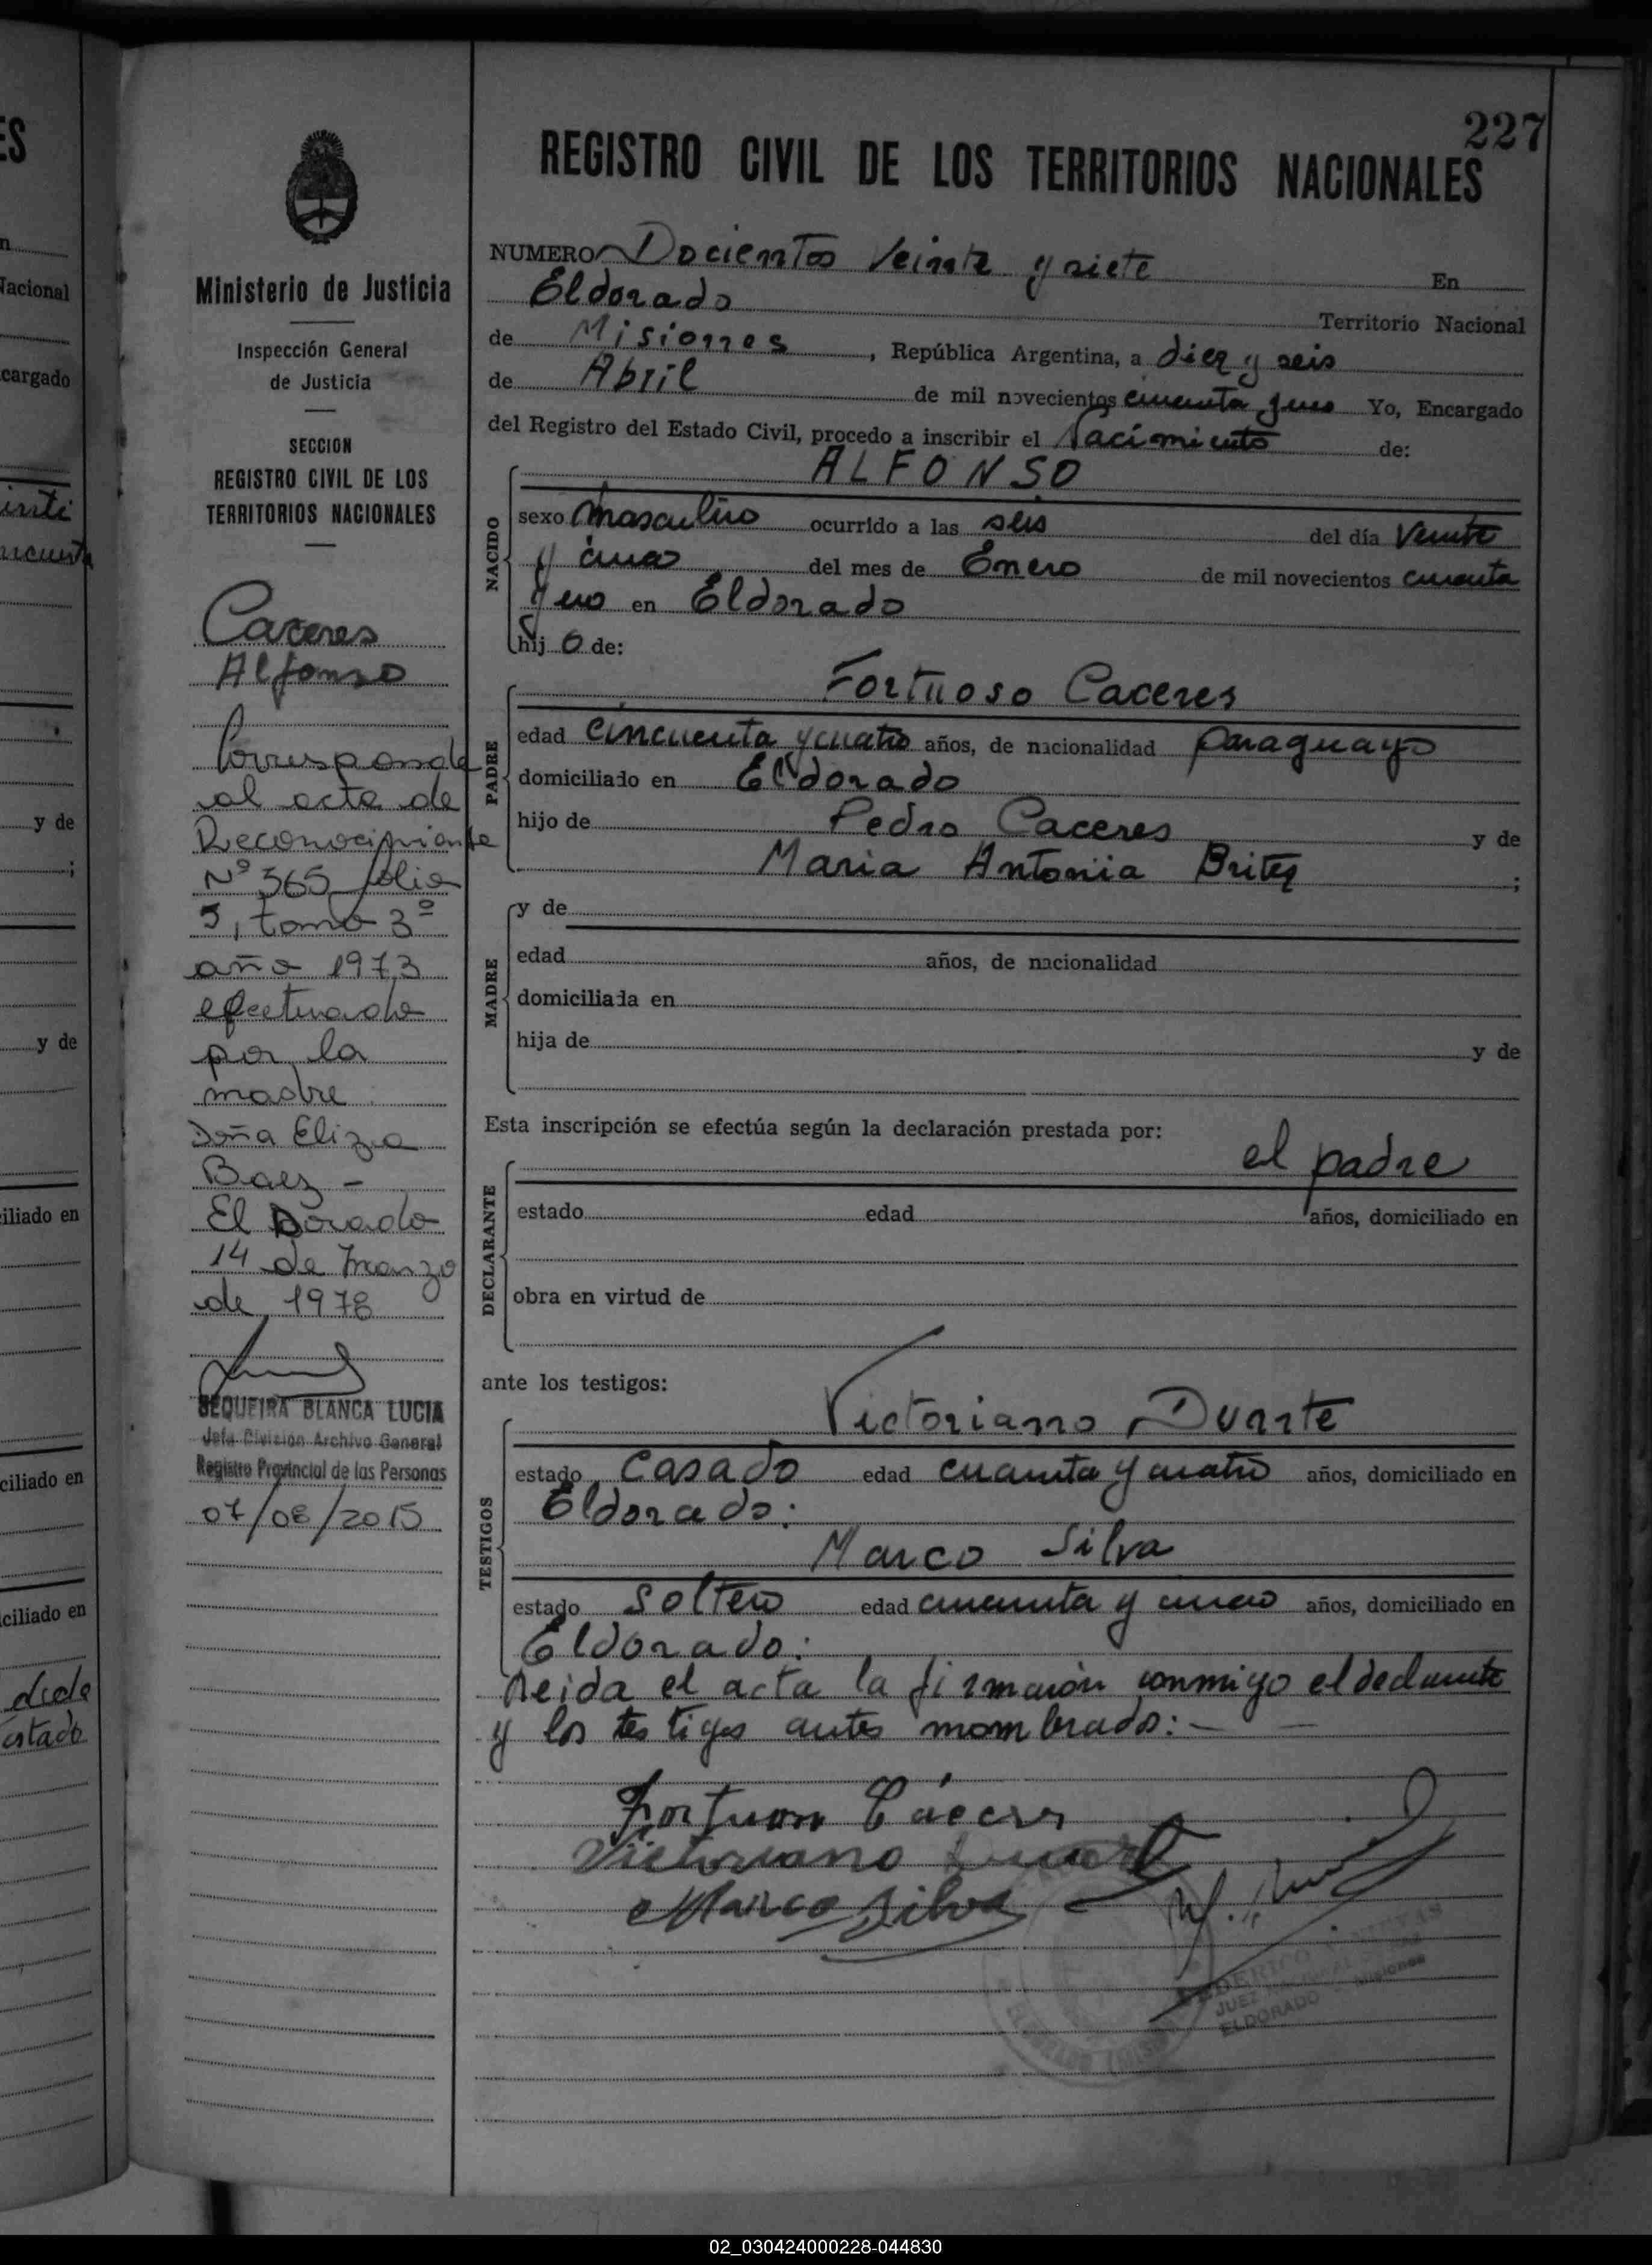 227
REGISTRO CIVIL DE LOS TERRITORIOS NACIONALES
Ministerio de Justicia
Inspección General
de Justicia
SECCION
REGISTRO CIVIL DE LOS
TERRITORIOS NACIONALES
Caceres
Alfonso
Corresponde
al acta de
Reconocimiento
Nº 365 folio
5, tomo 3º
año 1973
efectuado
por la
madre
Doña Eliza
Baez -
El Dorado
14 de Marzo
de 1978
SEQUEIRA BLANCA LUCIA
Jefa División Archivo General
Registro Provincial de las Personas
07/08/2015
NUMERO Docientos Veinte y siete En
Eldorado Territorio Nacional
de Misiones, República Argentina, a diez y seis
de Abril de mil novecientos cincuenta y uno Yo, Encargado
del Registro del Estado Civil, procedo a inscribir el Nacimiento de:
ALFONSO
NACIDO
sexo masculino ocurrido a las seis del día Veinte
y cinco del mes de Enero de mil novecientos cincuenta
y uno en Eldorado
hijo de:
Fortuoso Caceres
PADRE
edad cincuenta y cuatro años, de nacionalidad paraguayo
domiciliado en Eldorado
hijo de Pedro Caceres y de
Maria Antonia Britez ;
MADRE
y de
edad años, de nacionalidad
domiciliada en
hija de y de
Esta inscripción se efectúa según la declaración prestada por:
el padre
DECLARANTE
estado edad años, domiciliado en
obra en virtud de
ante los testigos:
Victoriano Duarte
TESTIGOS
estado Casado edad cuarenta y cuatro años, domiciliado en
Eldorado:
Marco Silva
estado soltero edad cuarenta y cinco años, domiciliado en
Eldorado:
Leida el acta la firmaron conmigo el declarante
y los testigos antes nombrados: — —
Fortuoso Cáceres
Victoriano Duarte
Marco Silva
ELDORADO - Misiones
02_030424000228-044830